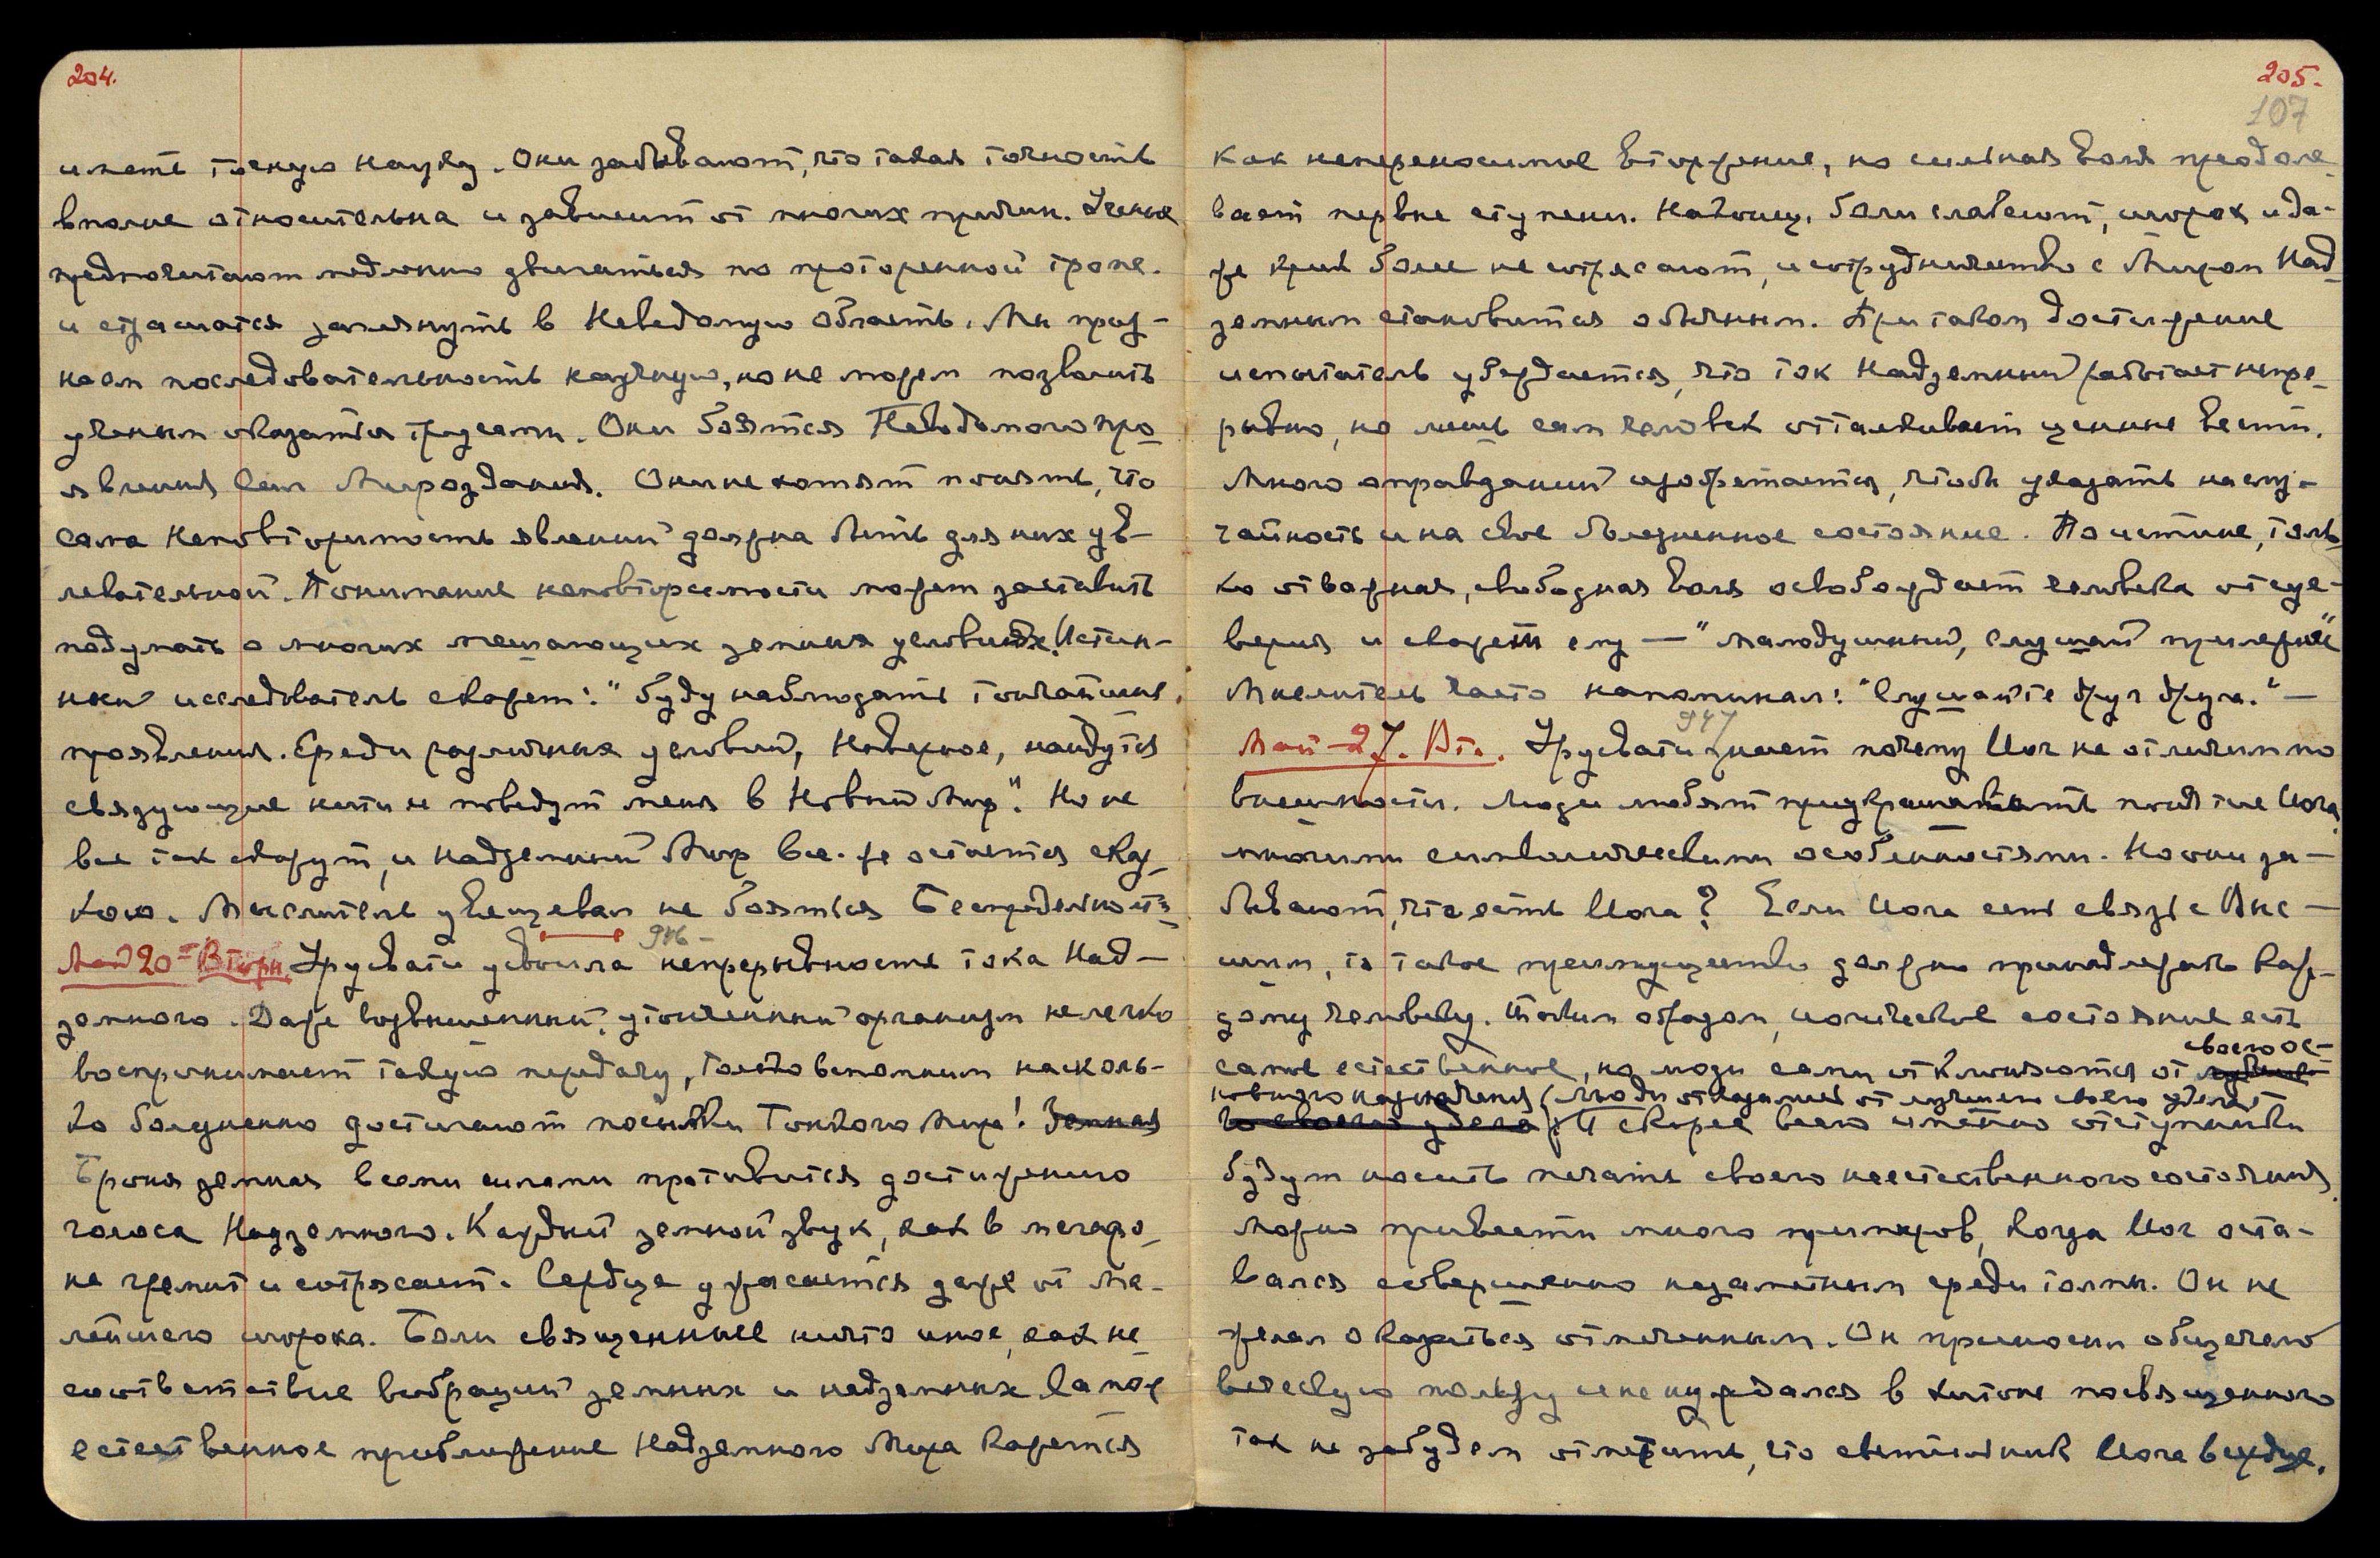 204.
иметь точную науку. Они забывают, что такая точность
вполне относительна и зависит от многих причин. Ученые
предпочитают медленно двигаться по проторенной тропе.
и страшатся заглянуть в Неведомую область. Мы приз-
наем последовательность научную, но не можем позволить
ученым оказаться трусами. Они боятся Неведомого про
явления сил Мироздания. Они не хотят понять, что
сама неповторимость явлений должна быть для них ув-
лекательной. Понимание неповторимости может заставить
подумать о многих мешающих земных условиях. Истин-
ный исследователь скажет: "буду наблюдать тончайшие
проявления. Среди различных условий, наверное, найдутся
связующие нити и поведут меня в Новый Мир". Но не
все так скажут, и Надземный Мир все-же остается сказ-
кою. Мыслитель увещевал не бояться Беспредельности
946 -
Май 20-е Вторн. Урусвати усвоила непрерывность тока Над-
земного. Даже возвышенный, утонченный организм нелегко
воспринимает такую передачу, только вспомним насколь-
ко болезненно достигают посылки Тонкого Мира! Земная
Броня земная всеми силами противится достижению
голоса Надземного. Каждый земной звук, как в мегафо
не гремит и сотрясает. Сердце ужасается даже от ма-
лейшего шороха. Боли священные ничто иное, как не
соответствие вибраций земных и надземных. Самое
естественное приближение Надземного Мира кажется
205.
107
как непереносимое вторжение, но сильная воля преодоле
вает первые ступени. Наконец, боли слабеют, шорох и да-
же крик более не сотрясают, и сотрудничество с Миром Над
земным становится обычным. При таком достижение
испытатель убеждается, что ток Надземный работает непре
рывно, но лишь сам человек отталкивает ценные вести.
Много оправданий изобретается, чтобы указать на слу-
чайность и на свое болезненное состояние. Поистине, толь
ко отважная, свободная воля освобождает человека от суе-
верия и скажет ему — "малодушный, слушай прилежней"
Мыслитель часто напоминал: "Слушайте друг друга." —
947
Май - 27. Вт. Урусвати знает почему Йог не отличим по
внешности. Люди любят приукрашивать понятие Йога
многими символическими особенностями. Но они за-
бывают, что есть Йога? Если Йога есть связь с Выс-
шим, то такое преимущество должно принадлежать каж-
дому человеку. Таким образом, йогическое состояние есть
своего ос-
самое естественное, но люди сами отклоняются от лучше
новного назначения (люди отказались от лучшего своего удела)
го своего удела; И скорее всего именно отступники
будут носить печать своего неестественного состояния.
Можно привести много примеров, когда Йог оста-
вался совершенно незаметным среди толпы. Он не
желал оказаться отмеченным. Он приносил общечело
веческую пользу и не нуждался в хитоне посвященного
Так не забудем отметить, что светильник Йога в сердце.